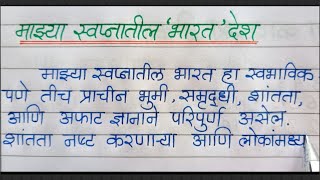 माझ्या स्वप्नातील 'भारत' देश
माझ्या स्वप्नातील भारत हा स्वभाविक
पणे तीच प्राचीन भुमी, समृद्धी, शांतता,
आणि अफाट ज्ञानाने परिपुर्ण असेल.
शांतता नष्ट करणाऱ्या आणि लोकांमध्य